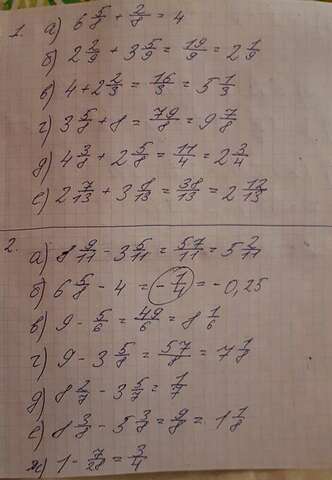 1. а) 6 5/8 + 2/8 = 4
б) 2 2/9 + 3 5/9 = 19/9 = 2 1/9
в) 4 + 2 2/3 = 16/3 = 5 1/3
г) 3 5/8 + 8 = 79/8 = 9 7/8
д) 4 3/8 + 2 5/8 = 11/4 = 2 3/4
е) 2 7/13 + 3 8/13 = 38/13 = 2 12/13
2. а) 8 9/11 - 3 5/11 = 57/11 = 5 2/11
б) 6 5/8 - 4 = - 1/4 = - 0,25
в) 9 - 5/6 = 49/6 = 8 1/6
г) 9 - 3 5/8 = 57/8 = 7 1/8
д) 8 2/7 - 3 5/7 = 1/7
е) 8 3/8 - 5 3/8 = 9/8 = 1 1/8
ж) 1 - 7/28 = 3/4